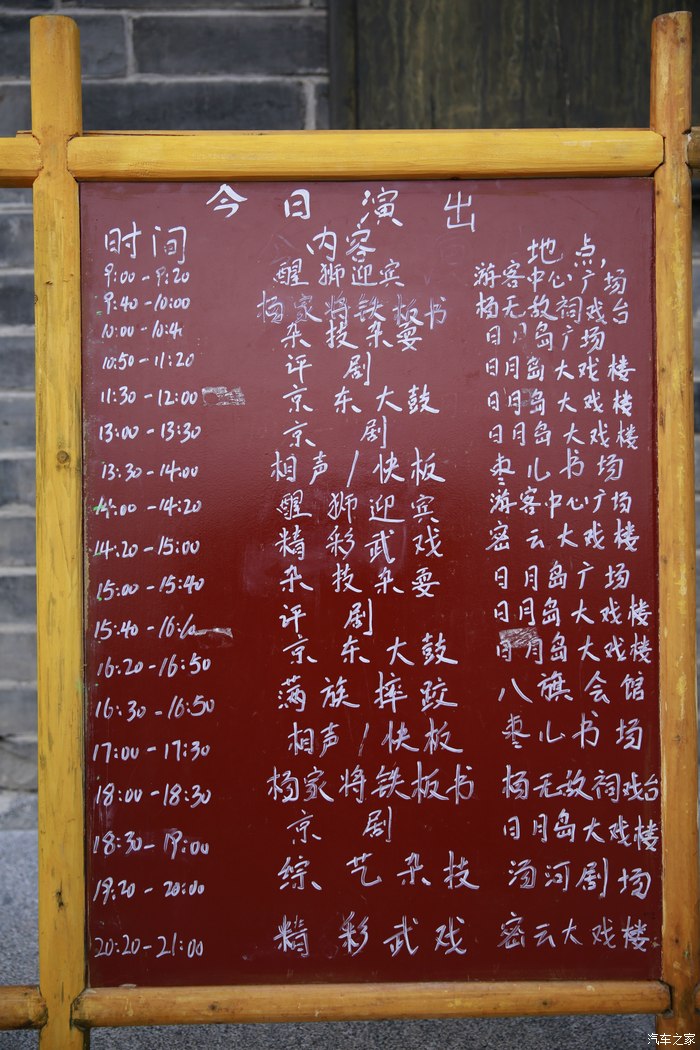 今日演出
时间 内容 地点,
9:00-9:20 醒狮迎宾 游客中心广场
9:40-10:00 杨家将铁板书 杨无敌祠戏台
10:00-10:4 杂技杂耍 日月岛广场
10:50-11:20 评剧 日月岛大戏楼
11:30-12:00 京东大鼓 日月岛大戏楼
13:00-13:30 京剧 日月岛大戏楼
13:30-14:00 相声/快板 枣儿书场
14:00-14:20 醒狮迎宾 游客中心广场
14:20-15:00 精彩武戏 密云大戏楼
15:00-15:40 杂技杂耍 日月岛广场
15:40-16:10 评剧 日月岛大戏楼
16:20-16:50 京东大鼓 日月岛大戏楼
16:30-16:50 满族摔跤 八旗会馆
17:00-17:30 相声/快板 枣儿书场
18:00-18:30 杨家将铁板书 杨无敌祠戏台
18:30-19:00 京剧 日月岛大戏楼
19:20-20:00 综艺杂技 汤河剧场
20:20-21:00 精彩武戏 密云大戏楼
汽车之家